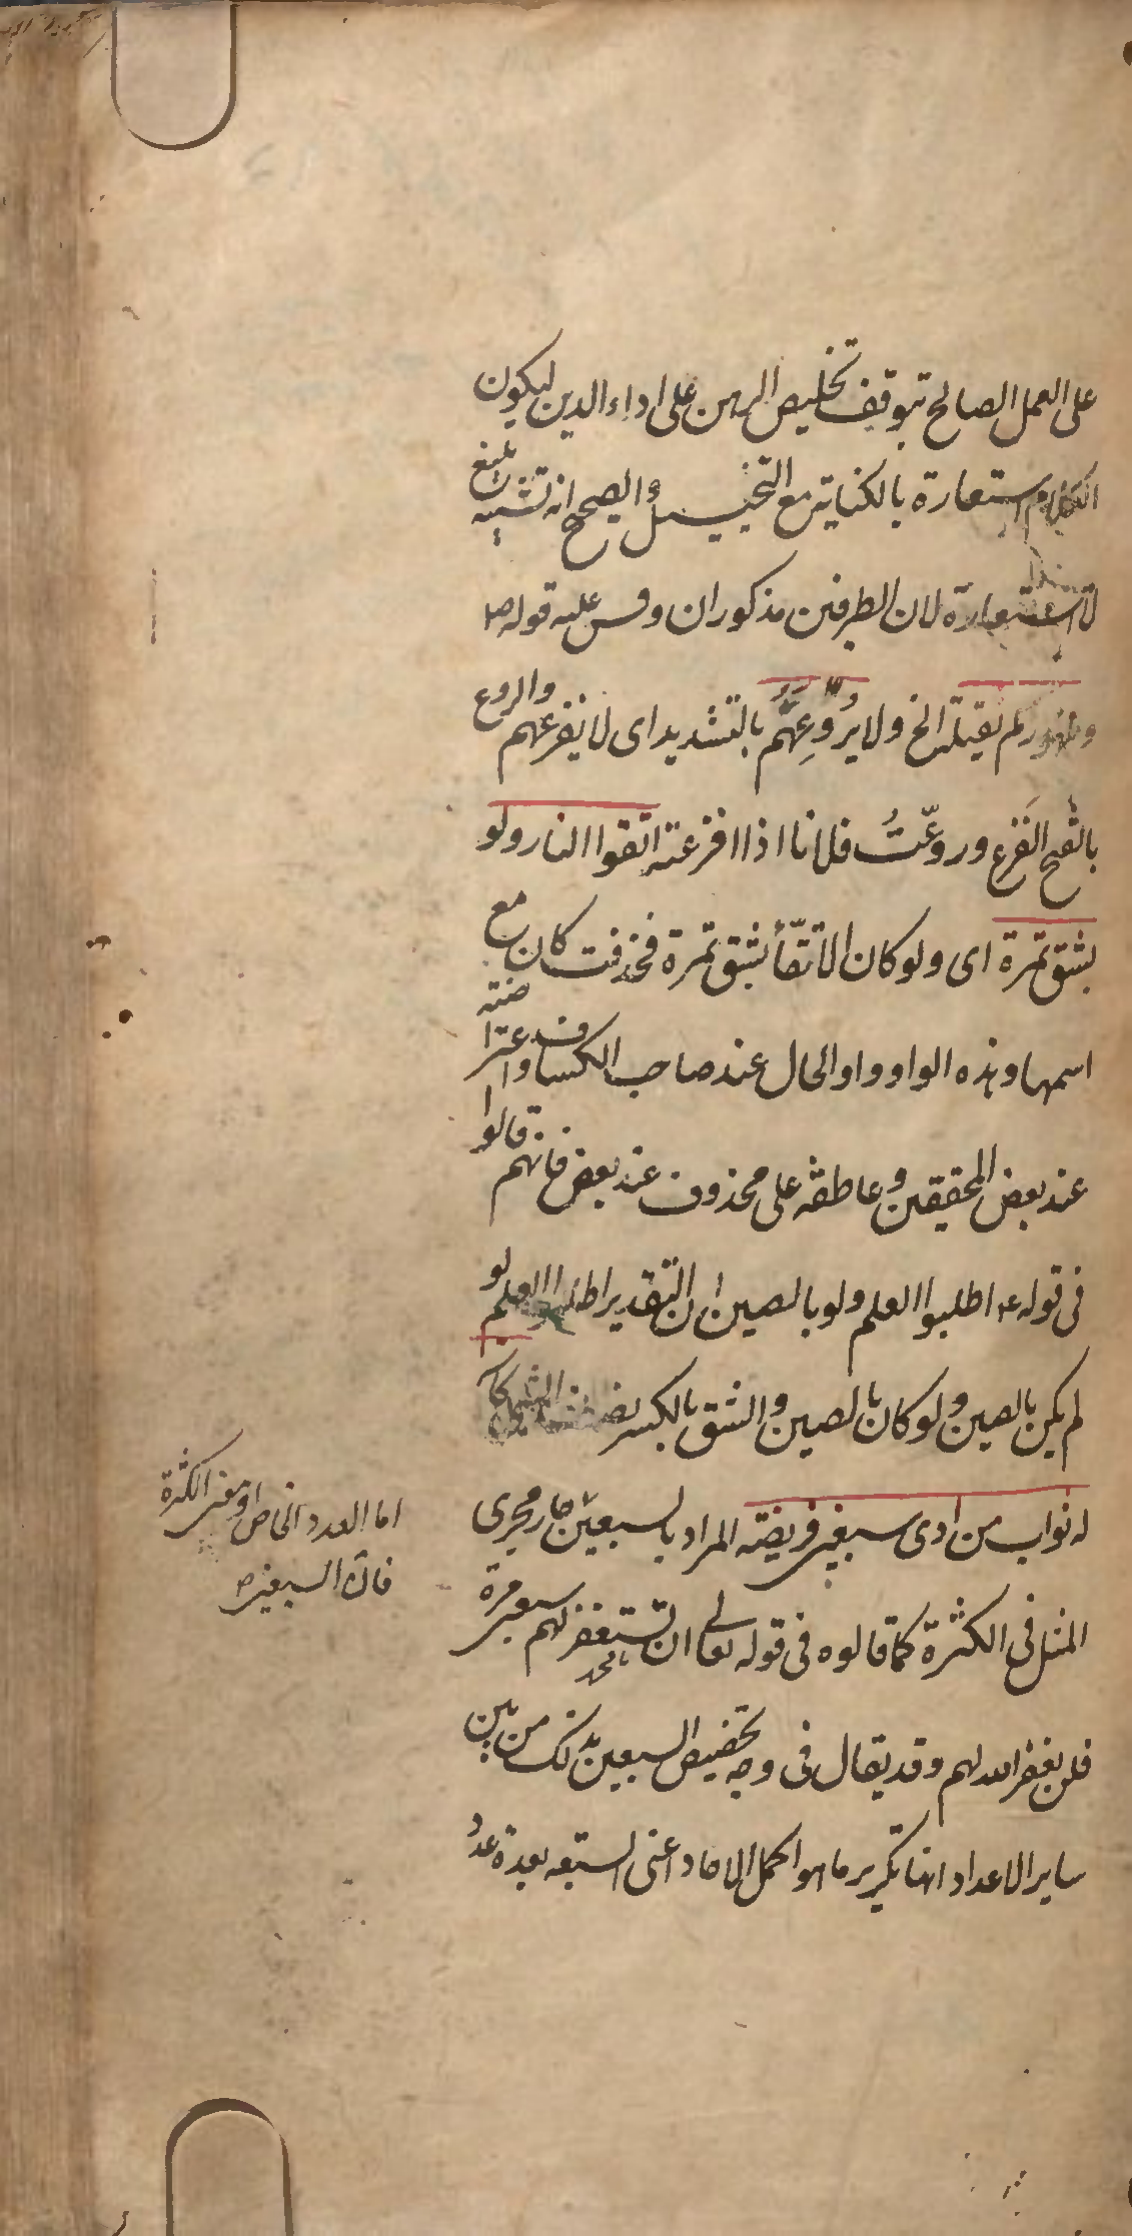 على العمل الصالح بتوقف تخليص الرهن على اداء الدين ليكون
الكلام استعارة بالكناية مع التخييل والصحيح انه تشبيه بليغ
لا استعارة لان الطرفين مذكوران وقس عليه قوله ص
وظهوركم ثقيلة الخ ولا يُرَوِّعهم بالتشديد اى لا يفزعهم والروع
بالفتح الفَزع وروّعتُ فلانا اذا افزعته اتقوا النار ولو
بشق تمرة اى ولو كان الاتقأ بشق تمرة فحذفت كان مع
اسمها وهذه الواو واو الحال عند صاحب الكشاف واعتراضية
عند بعض المحققين وعاطفة على محذوف عند بعض فانهم قالوا
فى قوله ع اطلبوا العلم ولو بالصين ان التقدير اطلبوا العلم لو
لم يكن بالصين ولو كان بالصين والشق بالكسر نصف الشئ كان
له ثواب من ادى سبعين فريضة المراد بالسبعين جار مجرى
المثل فى الكثرة كما قالوه فى قوله تعالى ان تستغفر لهم سبعين مرة
فلن يغفر الله لهم وقد يقال فى وجه تخصيص السبعين بذلك من بين
ساير الاعداد انها تكرير ما هو اكمل الاحاد اعنى السبعة بعدة عدُ
اما العدد الخاص او معنى الكثرة
فان السبعين ص